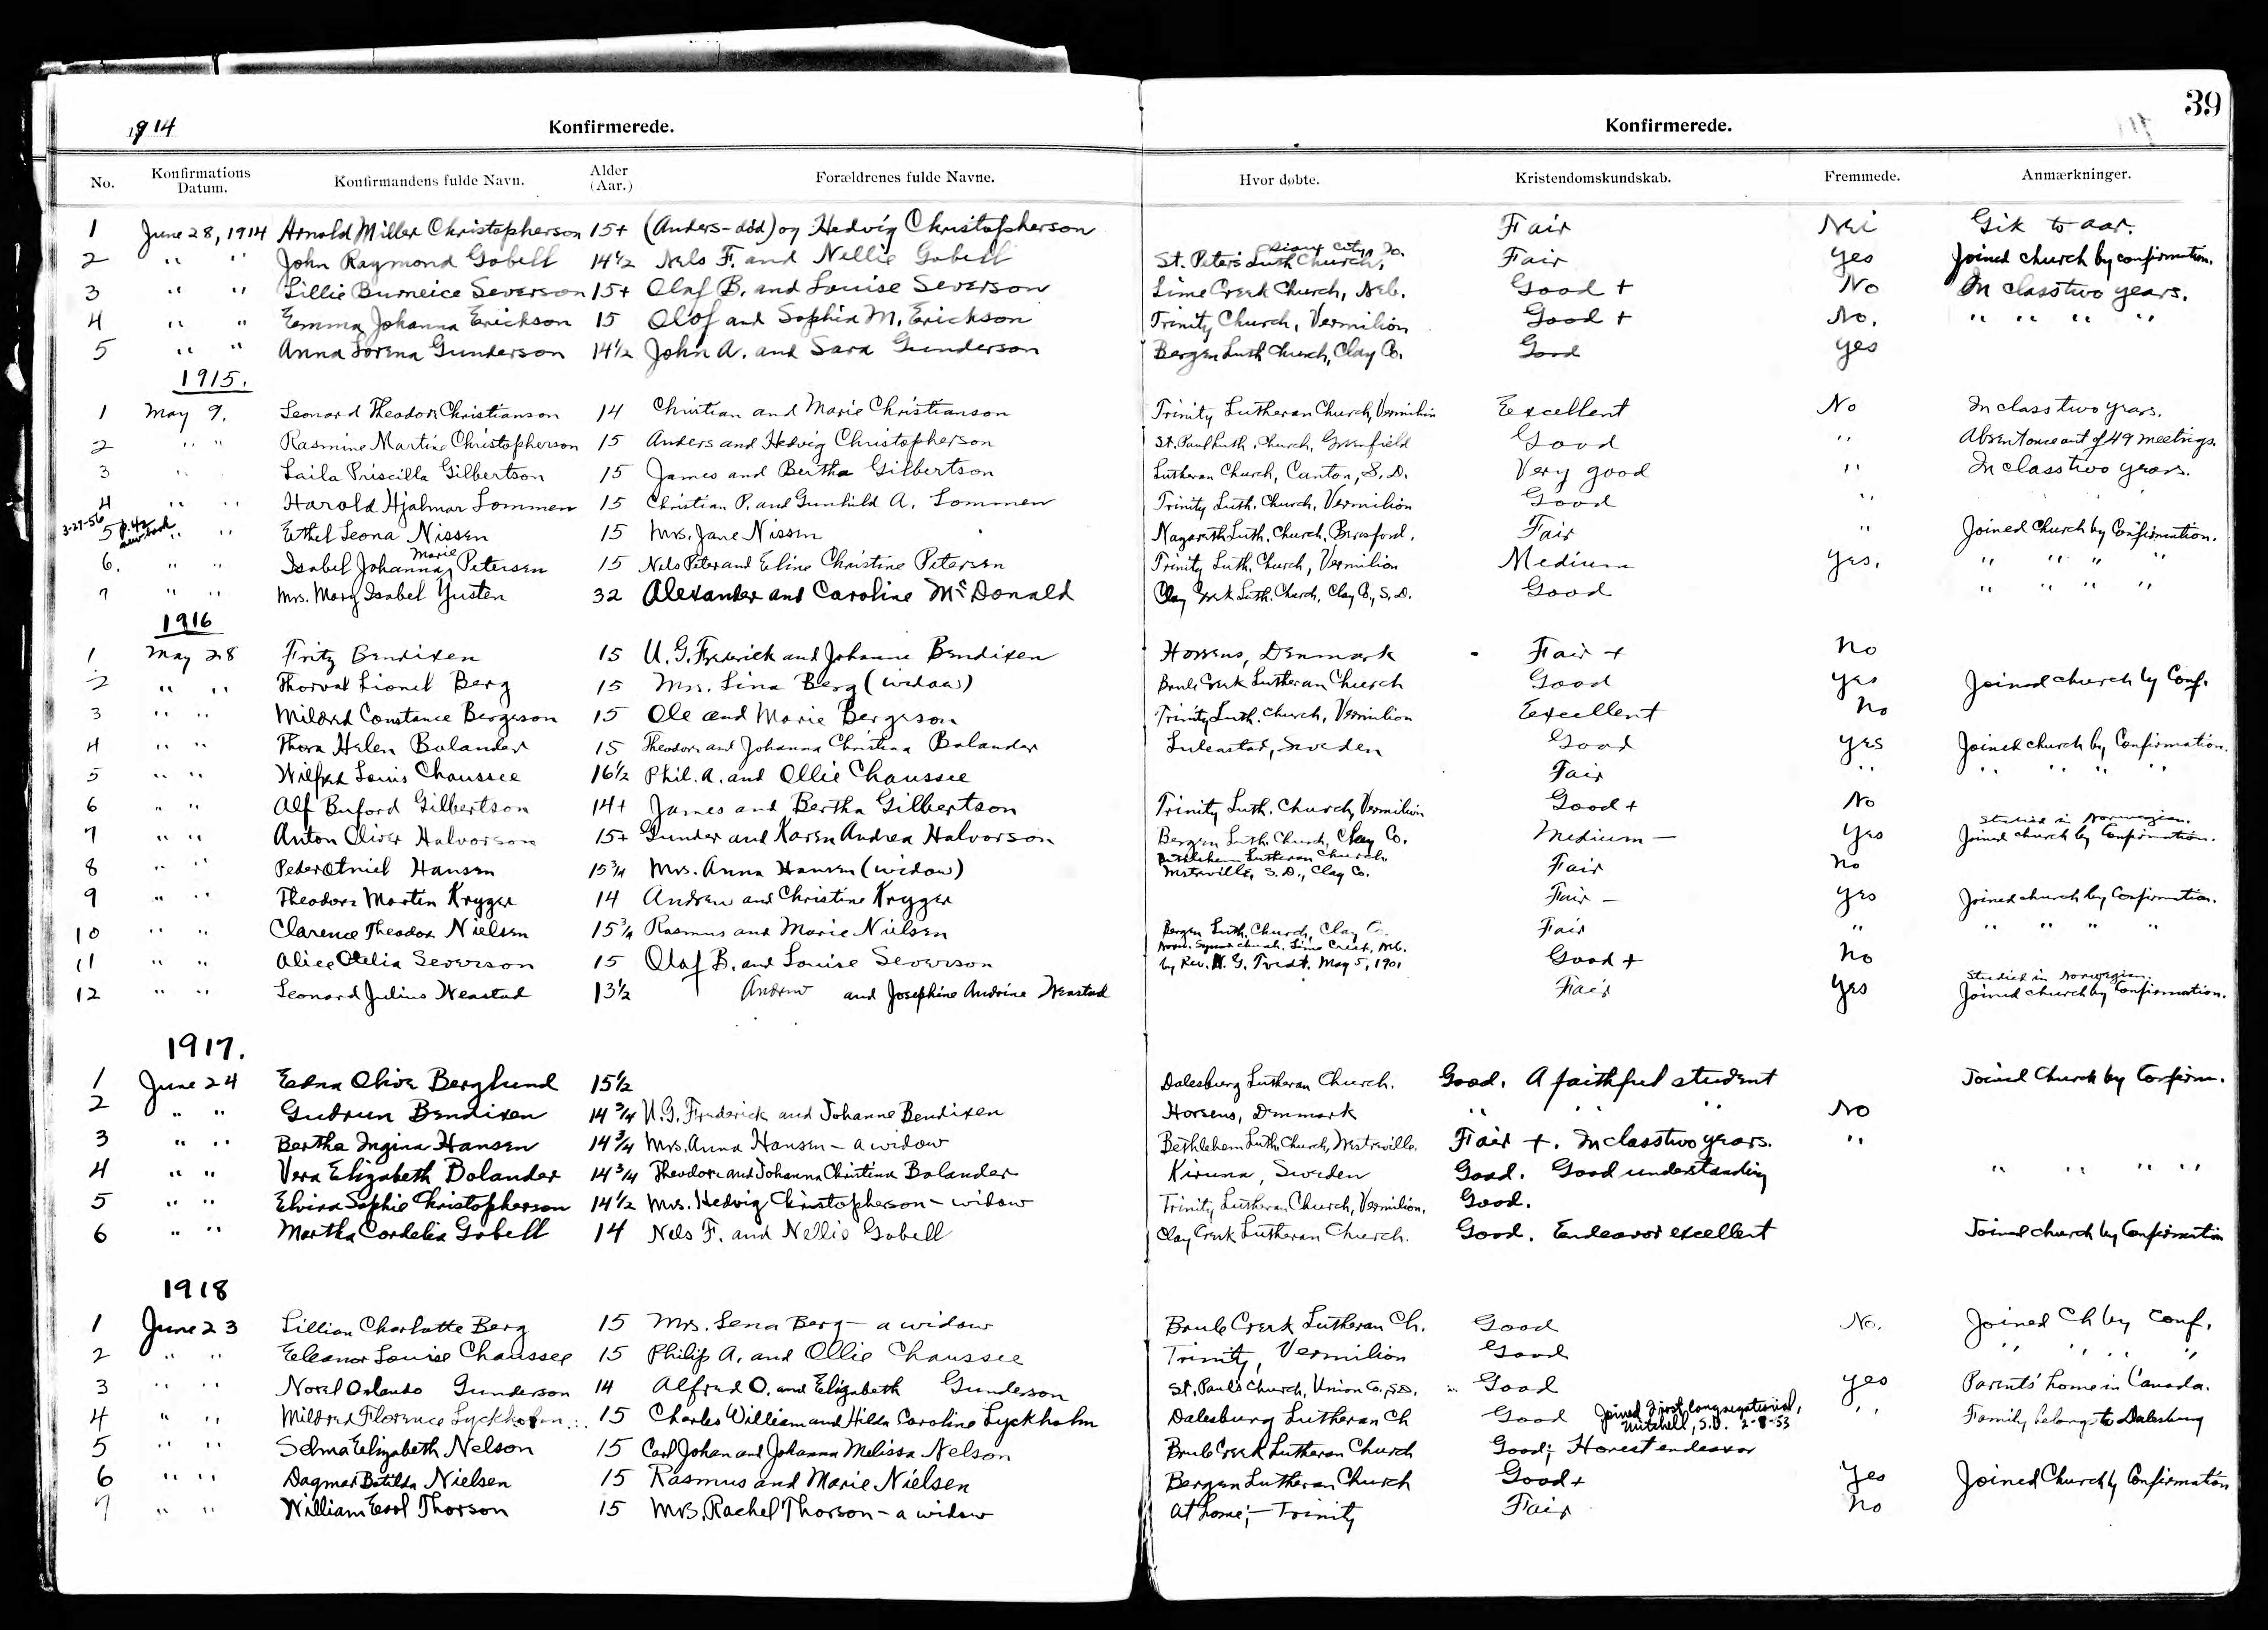 39
1914 Konfirmerede. Konfirmerede.
No. Konfirmations Datum. Konfirmandens fulde Navn. Alder (Aar.) Forældrenes fulde Navne. Hvor døbte. Kristendomskundskab. Fremmede. Anmærkninger.
1 June 28, 1914 Arnold Miller Christopherson 15+ (Anders - død) og Hedvig Christopherson Fair Nei Gik to aar.
2 " " John Raymond Gobell 14 1/2 Nels F. and Nellie Gobell St. Peter's Luth Church, Sioux City, Ia. Fair yes Joined church by confirmation.
3 " " Lillie Burneice Severson 15+ Olaf B. and Louise Severson Lime Creek Church, Neb. Good + No In class two years.
4 " " Emma Johanna Erickson 15 Olof and Sophia M. Erickson Trinity Church, Vermilion Good + No. " " " "
5 " " Anna Lorena Gunderson 14 1/2 John A. and Sara Gunderson Bergen Luth Church, Clay Co. Good yes
1915.
1 May 9. Leonard Theodore Christianson 14 Christian and Marie Christianson Trinity Lutheran Church, Vermilion Excellent No In class two years.
2 " " Rasmine Martine Christopherson 15 Anders and Hedvig Christopherson St. Paul Luth. Church, Greenfield Good " Absent once out of 49 meetings.
3 " Laila Priscilla Gilbertson 15 James and Bertha Gilbertson Lutheran Church, Canton, S. D. Very good " In class two years.
4 " " Harold Hjalmar Lommen 15 Christian P. and Gunhild A. Lommen Trinity Luth. Church, Vermilion Good "
3-27-56 5 p. 42 new book " " Ethel Leona Nissen 15 Mrs. Jane Nissen Nazareth Luth. Church, Beresford. Fair " Joined Church by Confirmation.
6. " " Isabel Johanna Marie Petersen 15 Nels Peter and Eline Christine Petersen Trinity Luth. Church, Vermilion Medium yes. " " " "
7 " " Mrs. Mary Isabel Yusten 32 Alexander and Caroline McDonald Clay Creek Luth. Church, Clay Co., S. D. Good " " " "
1916
1 May 28 Fritz Bendixen 15 U. G. Frederick and Johanne Bendixen Horsens, Denmark Fair + No
2 " " Thorval Lionel Berg 15 Mrs. Lina Berg (widow) Brule Creek Lutheran Church Good yes Joined church by Conf.
3 " " Mildred Constance Bergeson 15 Ole and Marie Bergeson Trinity Luth. Church, Vermilion Excellent No
4 " " Thora Helen Bolander 15 Theodore and Johanna Christina Bolander Luleastad, Sweden Good yes Joined church by Confirmation.
5 " " Wilfred Louis Chaussee 16 1/2 Phil. A. and Ollie Chaussee Fair " " " " "
6 " " Alf Buford Gilbertson 14+ James and Bertha Gilbertson Trinity Luth. Church, Vermilion Good + No
7 " " Anton Oliver Halvorson 15+ Gunder and Karen Andrea Halvorson Bergen Luth. Church, Clay Co. Medium — yes Studied in Norwegian. Joined church by Confirmation.
8 " " Peder Otniel Hansen 15 3/4 Mrs. Anna Hansen (widow) Bethlehem Lutheran Church, Westreville, S. D., Clay Co. Fair No
9 " " Theodore Morten Kryger 14 Andrew and Christine Kryger Fair — yes Joined church by Confirmation.
10 " " Clarence Theodor Nielsen 15 3/4 Rasmus and Marie Nielsen Bergen Luth. Church, Clay C. Fair " " " " "
11 " " Alice Otelia Severson 15 Olaf B. and Louise Severson Norw. Synod church, Lime Creek, Neb. by Rev. N. G. Tvedt. May 5, 1901 Good + No
12 " " Leonard Julius Wenstad 13 1/2 Andrew and Josephine Andrine Wenstad Fair yes Studied in Norwegian. Joined church by Confirmation.
1917.
1 June 24 Edna Olive Berglund 15 1/2 Dalesburg Lutheran Church. Good. A faithful student Joined Church by Confirm.
2 " " Gudrun Bendixen 14 3/4 U. G. Frederick and Johanne Bendixen Horsens, Denmark " " " No
3 " " Bertha Ingina Hansen 14 3/4 Mrs. Anna Hansen — a widow Bethlehem Luth. Church, Westreville. Fair +. In class two years. "
4 " " Vera Elizabeth Bolander 14 3/4 Theodore and Johanna Christina Bolander Kiruna, Sweden Good. Good understanding " " " "
5 " " Elvira Sophie Christopherson 14 1/2 Mrs. Hedvig Christopherson — widow Trinity Lutheran Church, Vermilion. Good.
6 " " Martha Cordelia Gobell 14 Nels F. and Nellie Gobell Clay Creek Lutheran Church. Good. Endeavor excellent Joined church by Confirmation
1918
1 June 23 Lillian Charlotte Berg 15 Mrs. Lena Berg — a widow Brule Creek Lutheran Ch. Good No. Joined Ch by Conf.
2 " " Eleanor Louise Chaussee 15 Philip A. and Ollie Chaussee Trinity, Vermilion Good " " " "
3 " " Norel Orlando Gunderson 14 Alfred O. and Elizabeth Gunderson St. Paul's Church, Union Co., S.D. Good yes Parents' home in Canada.
4 " " Mildred Florence Lyckholm 15 Charles William and Hilda Caroline Lyckholm Dalesburg Lutheran Ch Good Joined First Congregational, Mitchell, S.D. 2-8-53 " Family belongs to Dalesburg
5 " " Selma Elizabeth Nelson 15 Carl Johan and Johanna Melissa Nelson Brule Creek Lutheran Church Good; Honest endeavor
6 " " Dagmar Botilda Nielsen 15 Rasmus and Marie Nielsen Bergen Lutheran Church Good + Yes Joined Church by Confirmation
7 " " William Errol Thorson 15 Mrs. Rachel Thorson — a widow At home; — Trinity Fair No